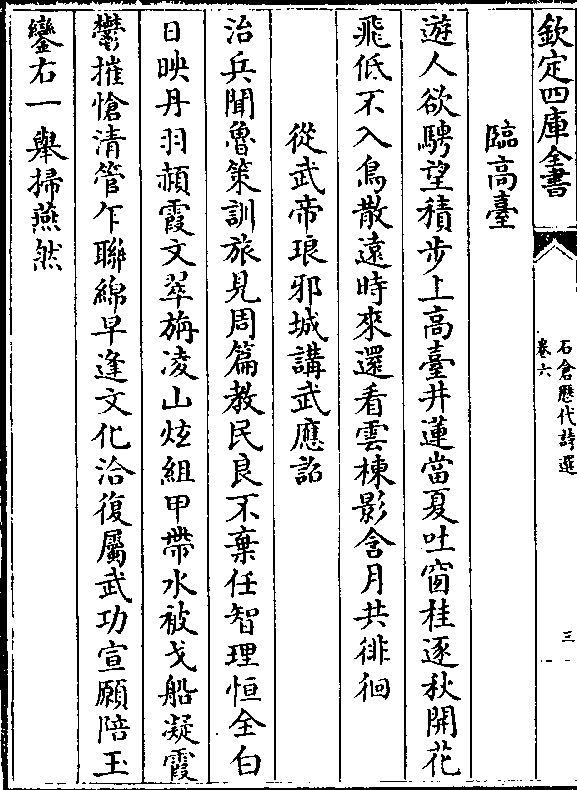 欽定四庫全書
石倉歷代詩選
卷六
三
臨高臺
遊人欲騁望積步上高臺井蓮當夏吐窗桂逐秋開花
飛低不入鳥散遠時來還看雲棟影含月共徘徊
從武帝琅邪城講武應詔
治兵聞魯策訓旅見周篇教民良不棄任智理恒全白
日映丹羽頳霞文翠旃凌山炫組甲帶水被戈船凝霞
鬱摧愴清管乍聯綿早逢文化洽復屬武功宣願陪玉
鑾右一舉掃燕然